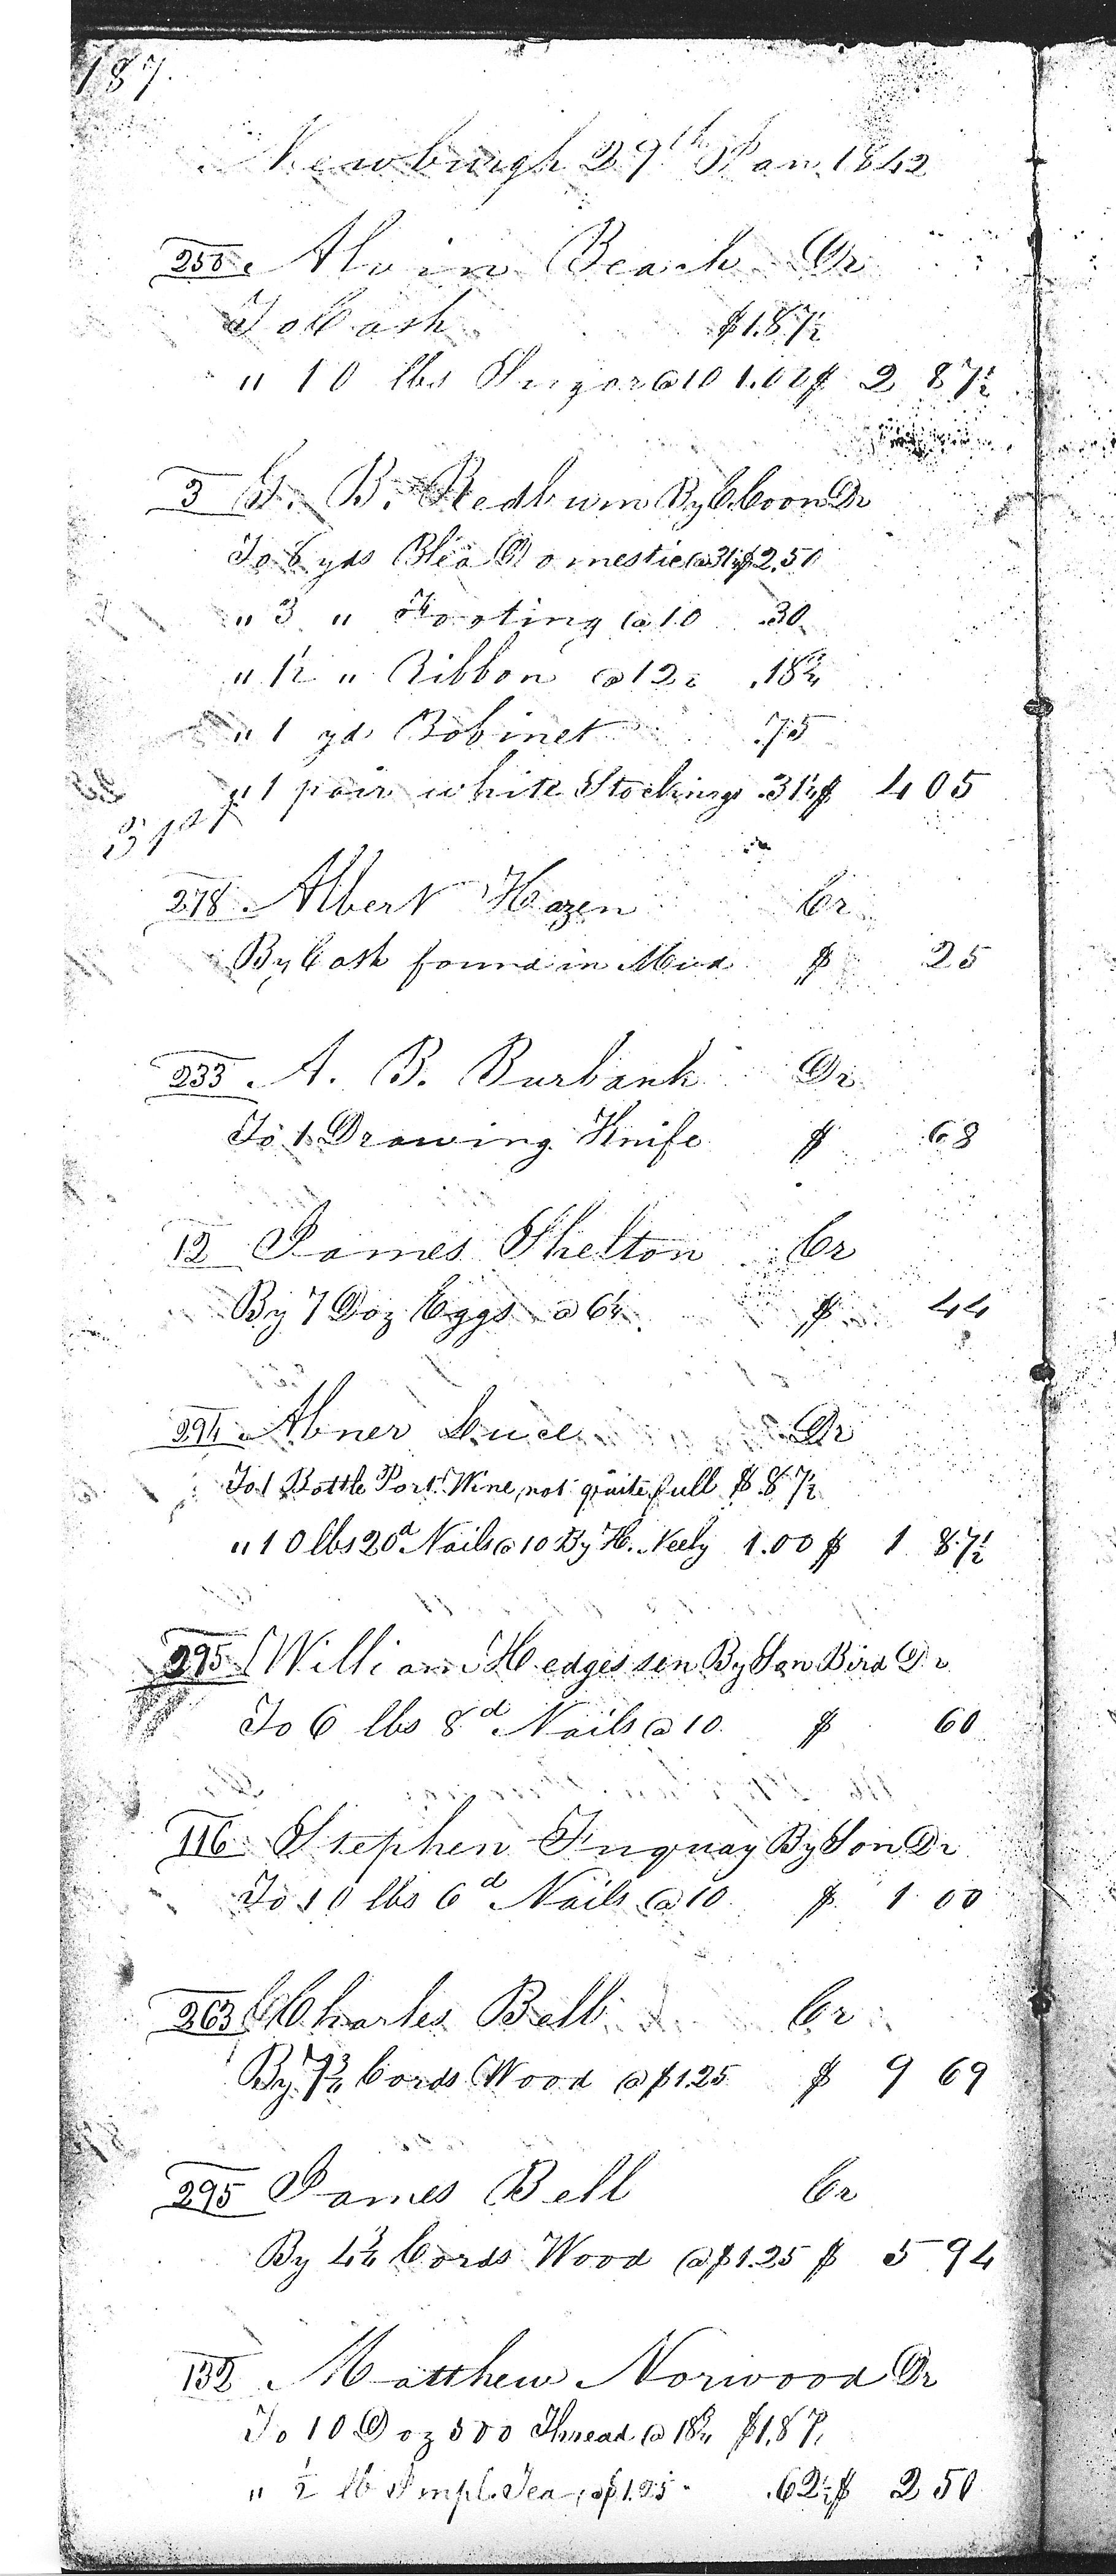 187
Newburgh 29th Jan. 1842
250 Alvin Beach Dr
To Cash $1.87½
" 10 lbs Sugar @10 1.00 $ 2 87½
3 G. B. Redburn By C. Coon Dr
To 8 yds Blea Domestic @31¼ $2.50
" 3 " Footing @10 .30
" 1½ " Ribbon @12½ .18¾
" 1 yd Bobinet .75
" 1 pair white Stockings .31¼ $ 4 05
31st
278 Albert Hazen Cr
By Cash found in Mud $ 25
233 A. B. Burbank Dr
To 1 Drawing Knife $ 68
12 James Shelton Cr
By 7 Doz Eggs @ 6¼ $ 44
294 Abner Luce Dr
To 1 Bottle Port Wine, not quite full $ .87½
" 10 lbs 20d Nails @10 By H. Neely 1.00 $ 1 87½
295 William Hedges sen By Son Bird Dr
To 6 lbs 8d Nails @ 10 $ 60
116 Stephen Fuquay By Son Dr
To 10 lbs 6d Nails @10 $ 1 00
263 Charles Bell Cr
By 7¾ Cords Wood @ $1.25 $ 9 69
295 James Bell Cr
By 4¾ Cords Wood @ $1.25 $ 5 94
132 Matthew Norwood Dr
To 10 Doz 500 Thread @ 18¾ $1.87½
" ½ lb Impl. Tea @ $1.25 .62½ $ 2 50